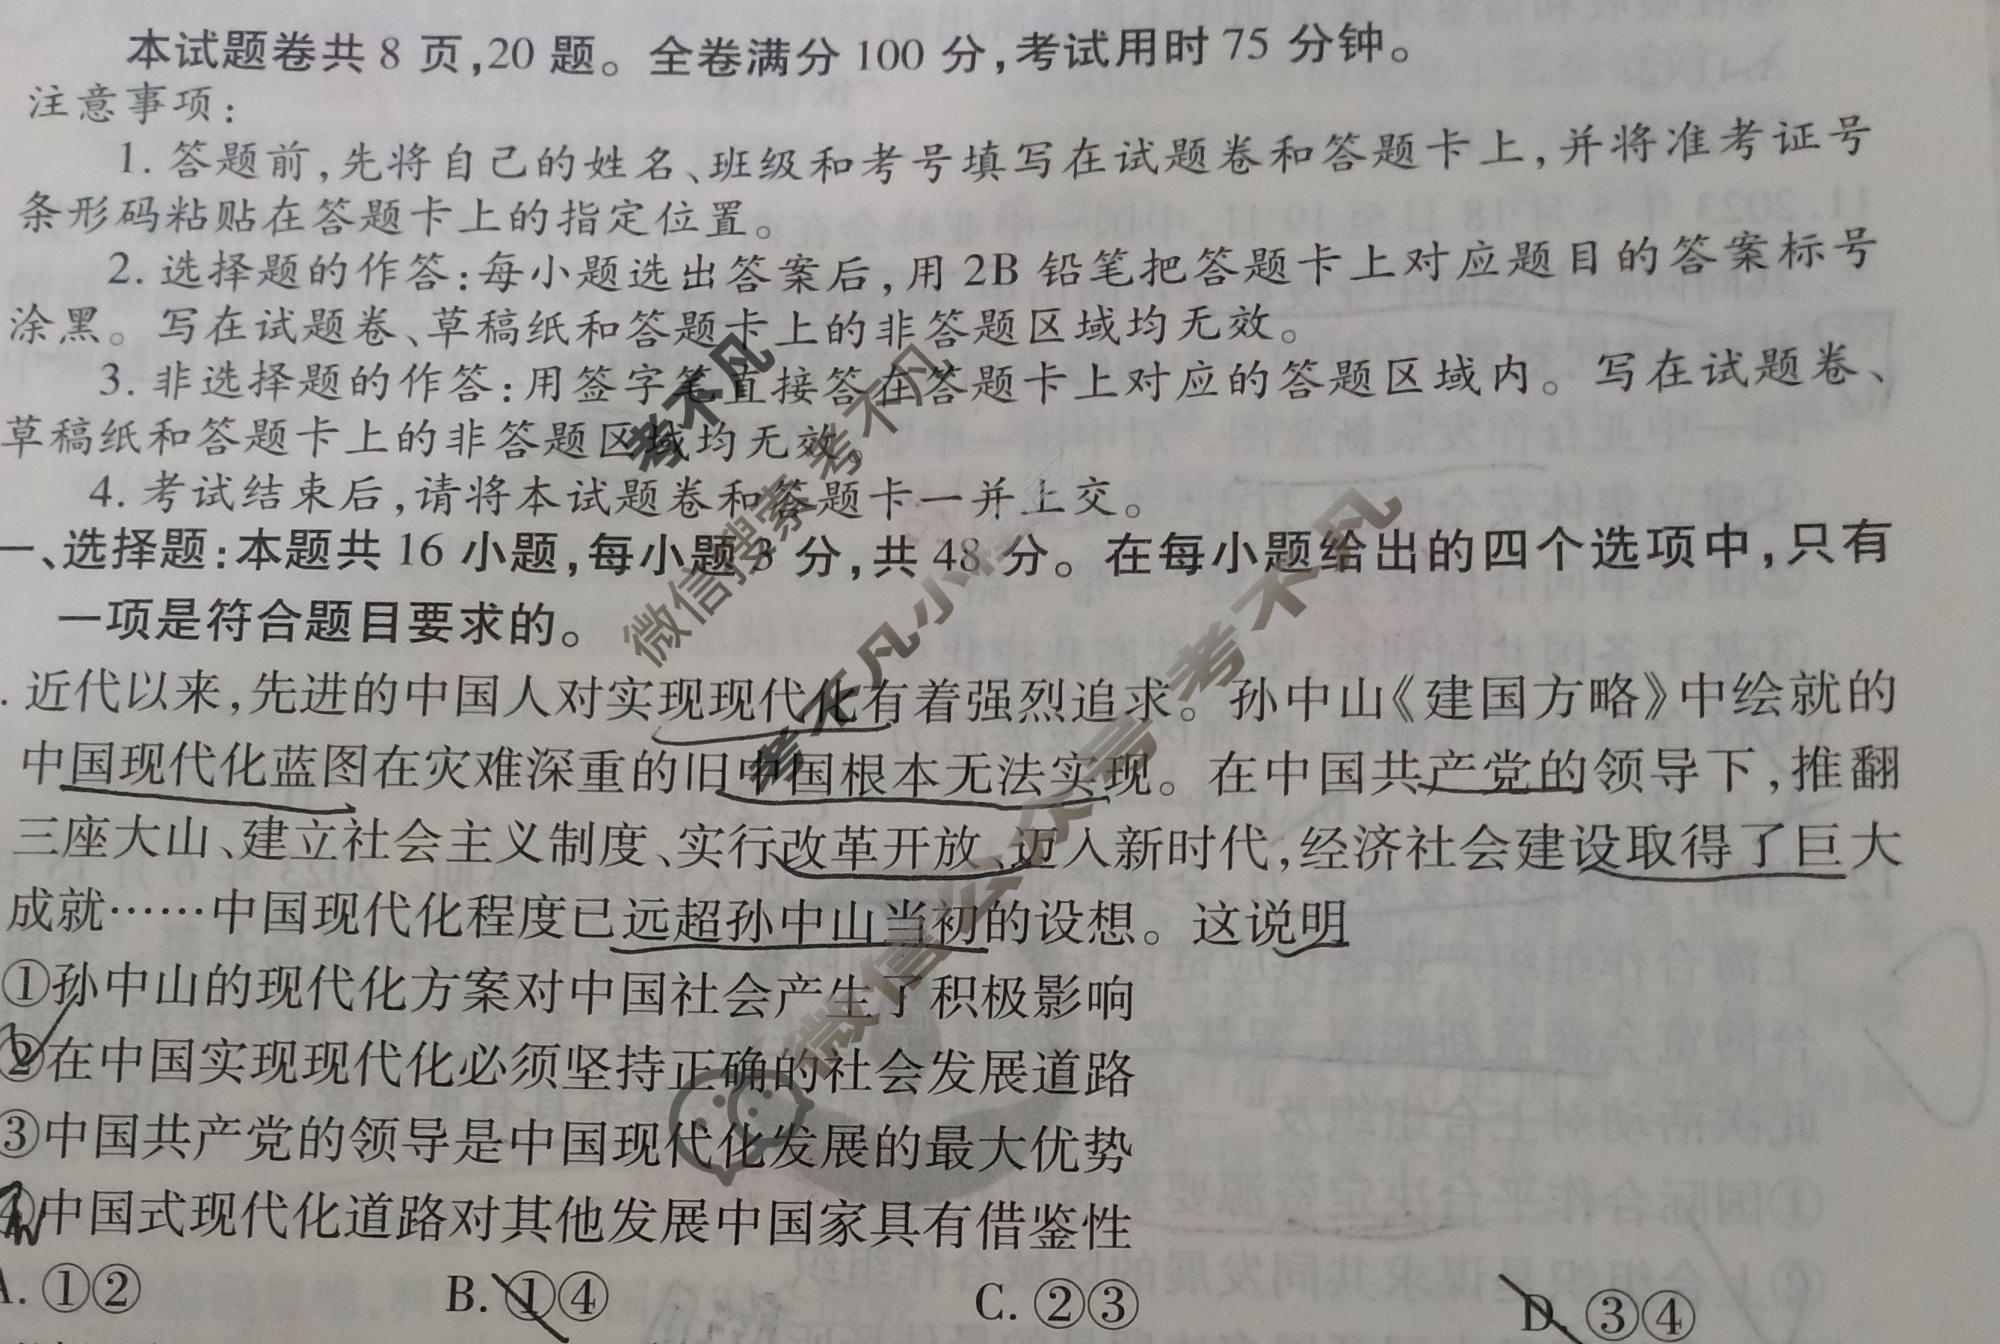 本试题卷共8页,20题。全卷满分100分,考试用时75分钟。
注意事项:
1.答题前,先将自己的姓名、班级和考号填写在试题卷和答题卡上,并将准考证号
条形码粘贴在答题卡上的指定位置。
2.选择题的作答:每小题选出答案后,用2B铅笔把答题卡上对应题目的答案标号
涂黑。写在试题卷、草稿纸和答题卡上的非答题区域均无效。
3.非选择题的作答:用签字笔直接答在答题卡上对应的答题区域内。写在试题卷、
草稿纸和答题卡上的非答题区域均无效。
4.考试结束后,请将本试题卷和答题卡一并上交。
一、选择题:本题共16小题,每小题3分,共48分。在每小题给出的四个选项中,只有
一项是符合题目要求的。
.近代以来,先进的中国人对实现现代化有着强烈追求。孙中山《建国方略》中绘就的
中国现代化蓝图在灾难深重的旧中国根本无法实现。在中国共产党的领导下,推翻
三座大山、建立社会主义制度、实行改革开放、迈入新时代,经济社会建设取得了巨大
成就……中国现代化程度已远超孙中山当初的设想。这说明
①孙中山的现代化方案对中国社会产生了积极影响
②在中国实现现代化必须坚持正确的社会发展道路
③中国共产党的领导是中国现代化发展的最大优势
④中国式现代化道路对其他发展中国家具有借鉴性
A.①② B.①④ C.②③ D.③④
考不凡
微信搜索考不凡
考不凡小
微信公众号考不凡